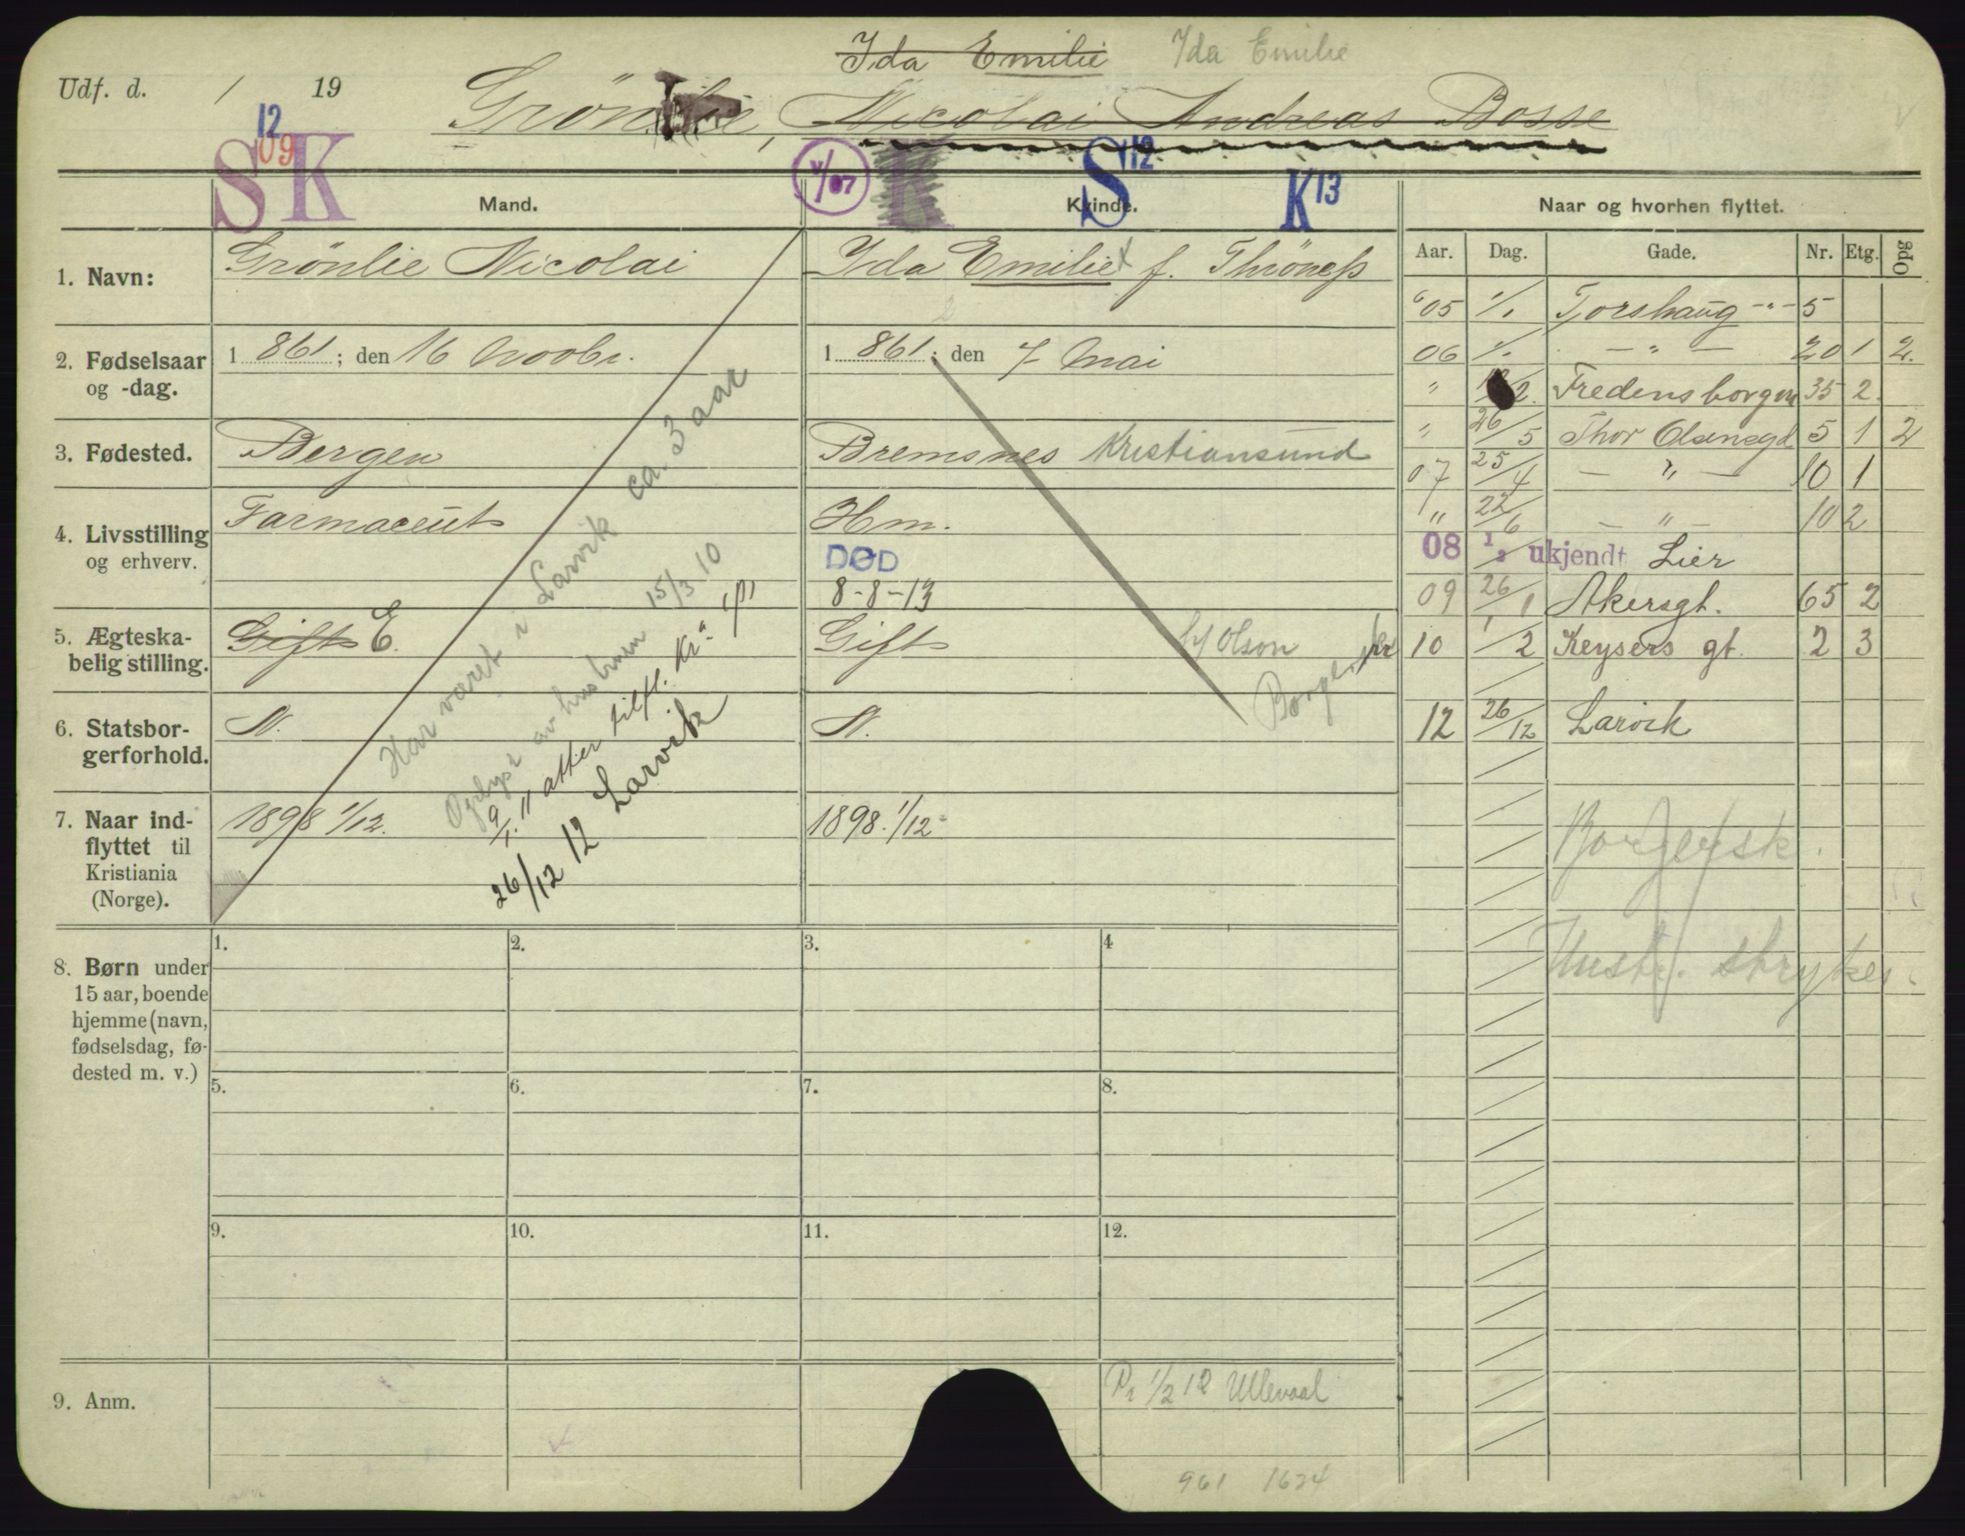 Ida Emilie Ida Emilie
Udf. d. / 19
Grönlie, Nicolai Andreas Bosse
12
09
S K V/07 K S 12 K 13
Mand. Kvinde. Naar og hvorhen flyttet.
Aar. Dag. Gade. Nr. Etg. Opg
1. Navn: Grönlie Nicolai
Ida Emilie x f. Thröness
2. Fødselsaar og -dag.
1 861; den 16 Novbr.
1 861; den 7 Mai
3. Fødested. Bergen
Bremsnes Kristiansund
4. Livsstilling og erhverv.
Farmaceut
Hm.
DØD
8-8-13
5. Ægteska-
belig stilling.
Gift E.
Gift
6. Statsbor-
gerforhold.
N.
N.
7. Naar ind-
flyttet til
Kristiania
(Norge).
1898 1/12.
1898. 1/12
Har været i Larvik ca. 3 aar
Oplyst av hustruen 15/3 10
9/1 11 atter tilfl. Kr.a
26/12 12 Larvik
Olson
05 1/1 Tjorshaug -"- 5
06 1/1 -"- 20 1 2.
" Fredensborgen 35 2.
" 26/5 Thor Olsensgd 5 1 2
07 25/4 -"- 10 1
" 22/6 -"- 10 2
08 1/2 ukjendt Lier
09 26/1 Akersgt. 65 2
10 1/2 Keysers gt. 2 3
12 26/12 Larvik
Hustr. strykes.
8. Børn under
15 aar, boende
hjemme (navn,
fødselsdag, fø-
dested m. v.)
1. 2. 3. 4
5. 6. 7. 8.
9. 10. 11. 12.
9. Anm.
1/2 12 Ullevaal
961 1624